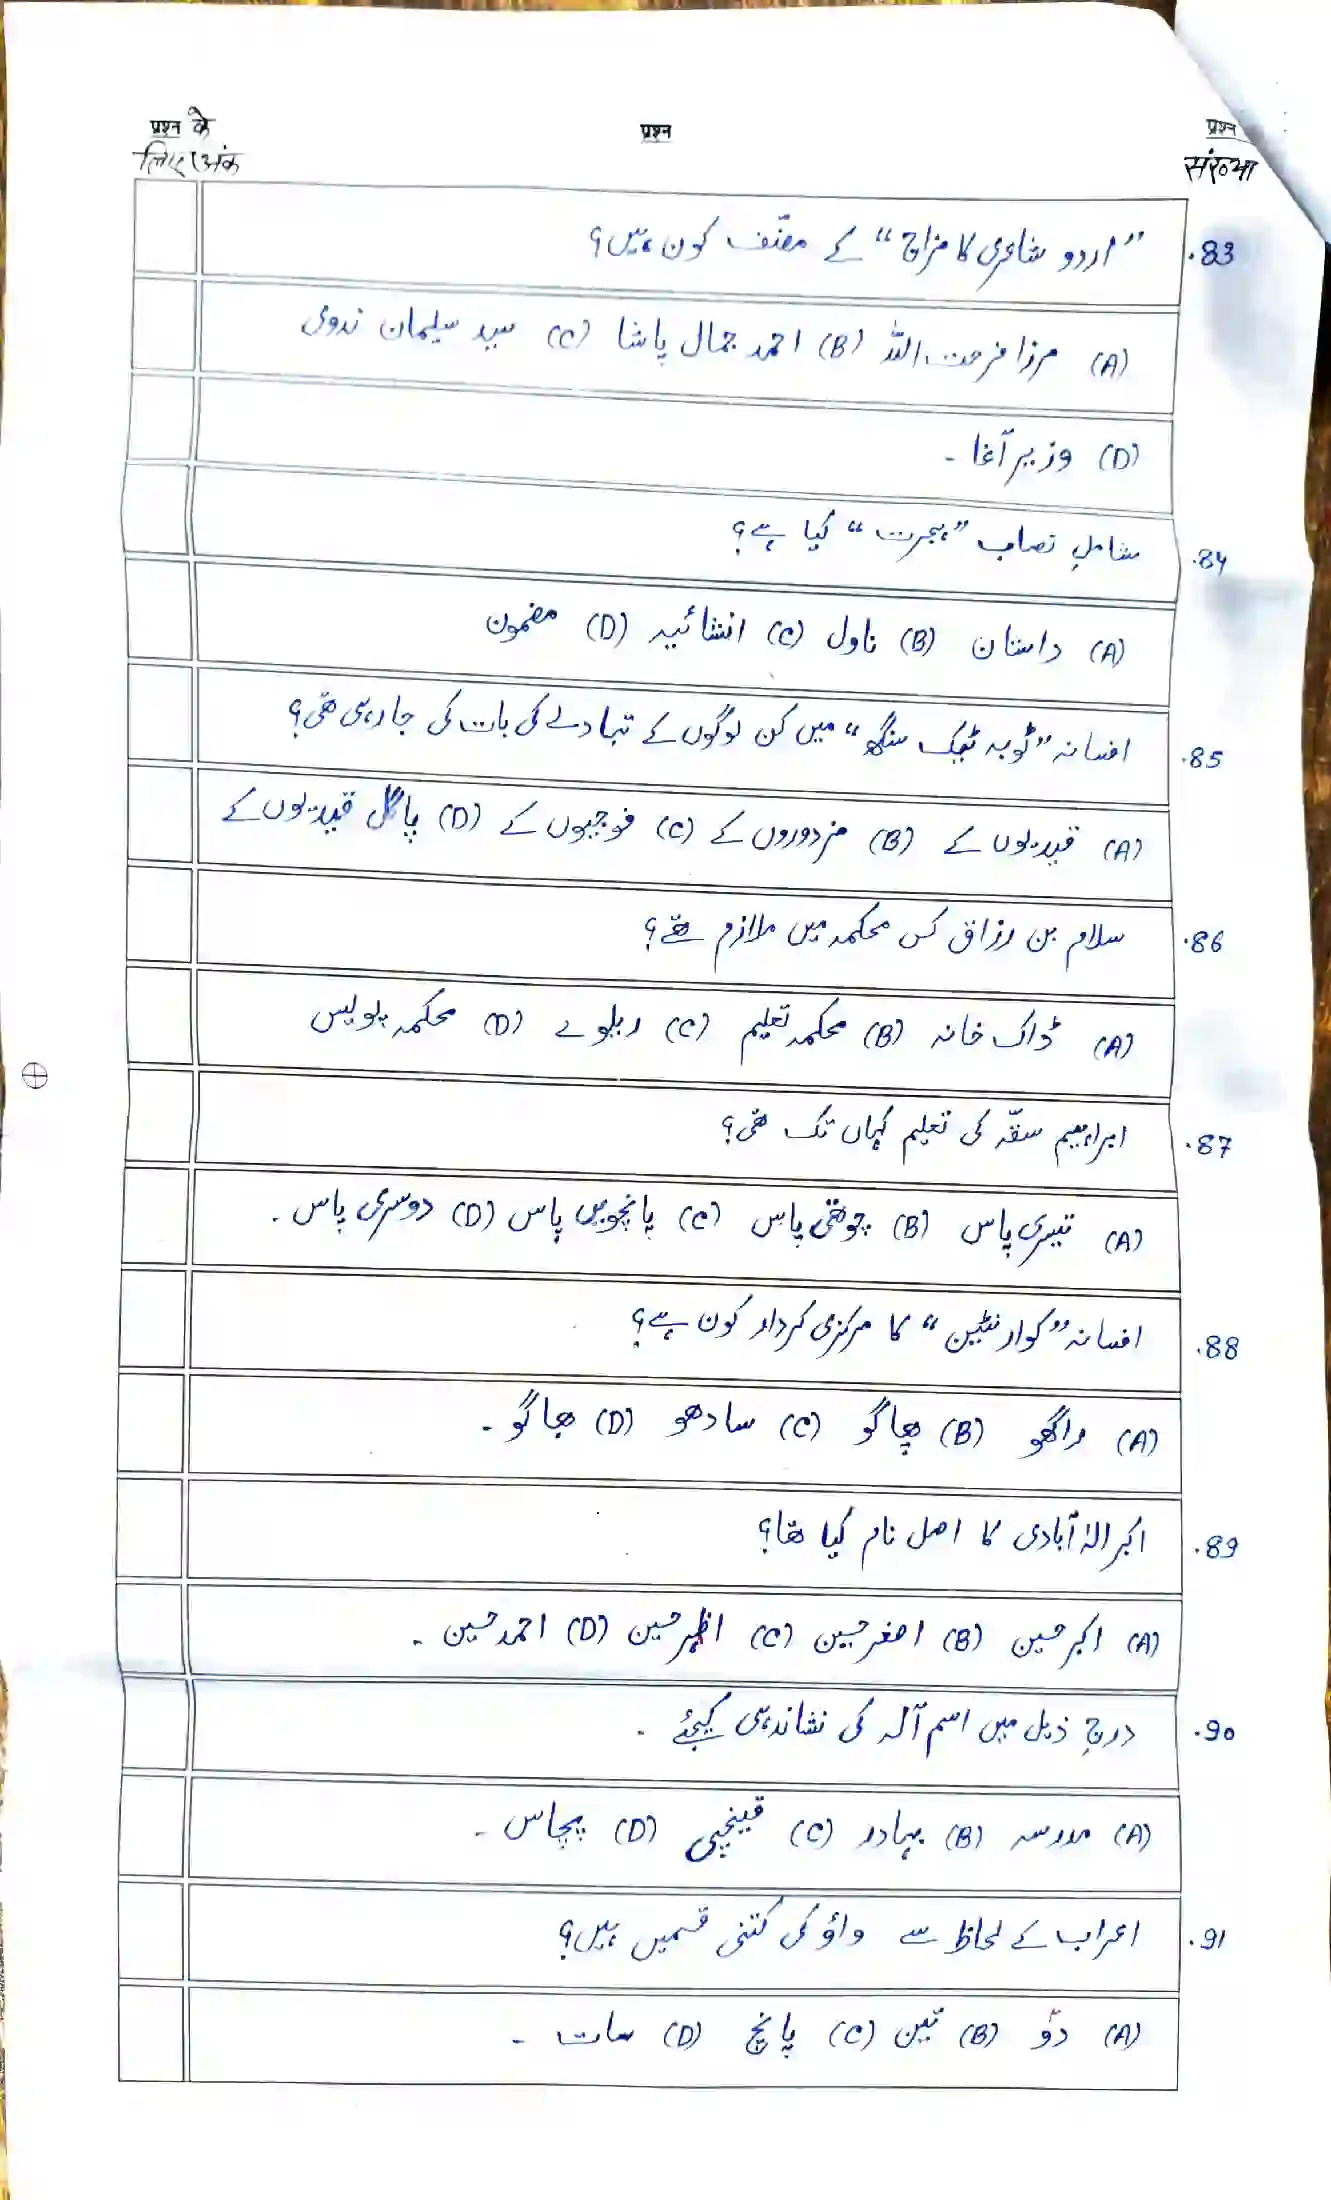 प्रश्न के प्रश्न प्रश्न
लिए अंक संख्या
83. ”اردو شاعری کا مزاج“ کے مصنّف کون ہیں؟
(A) مرزا فرحت اللہ (B) احمد جمال پاشا (C) سید سلیمان ندوی
(D) وزیر آغا ۔
84. شاملِ نصاب ”ہجرت“ کیا ہے؟
(A) داستان (B) ناول (C) انشائیہ (D) مضمون
85. افسانہ ”ٹوبہ ٹیک سنگھ“ میں کن لوگوں کے تبادلے کی بات کی جارہی تھی؟
(A) قیدیوں کے (B) مزدوروں کے (C) فوجیوں کے (D) پاگل قیدیوں کے
86. سلام بن رزاق کس محکمہ میں ملازم تھے؟
(A) ڈاک خانہ (B) محکمہ تعلیم (C) ریلوے (D) محکمہ پولیس
87. ابراہیم سقّہ کی تعلیم کہاں تک تھی؟
(A) تیسری پاس (B) چوتھی پاس (C) پانچویں پاس (D) دوسری پاس ۔
88. افسانہ ”کوارنٹین“ کا مرکزی کردار کون ہے؟
(A) راگھو (B) چاگو (C) سادھو (D) بھاگو ۔
89. اکبر الہٰ آبادی کا اصل نام کیا تھا؟
(A) اکبر حسین (B) اصغر حسین (C) اظہر حسین (D) احمد حسین ۔
90. درجِ ذیل میں اسم آلہ کی نشاندہی کیجئے ۔
(A) مدرسہ (B) بہادر (C) قینچی (D) پچاس ۔
91. اعراب کے لحاظ سے واؤ کی کتنی قسمیں ہیں؟
(A) دو (B) تین (C) پانچ (D) سات ۔